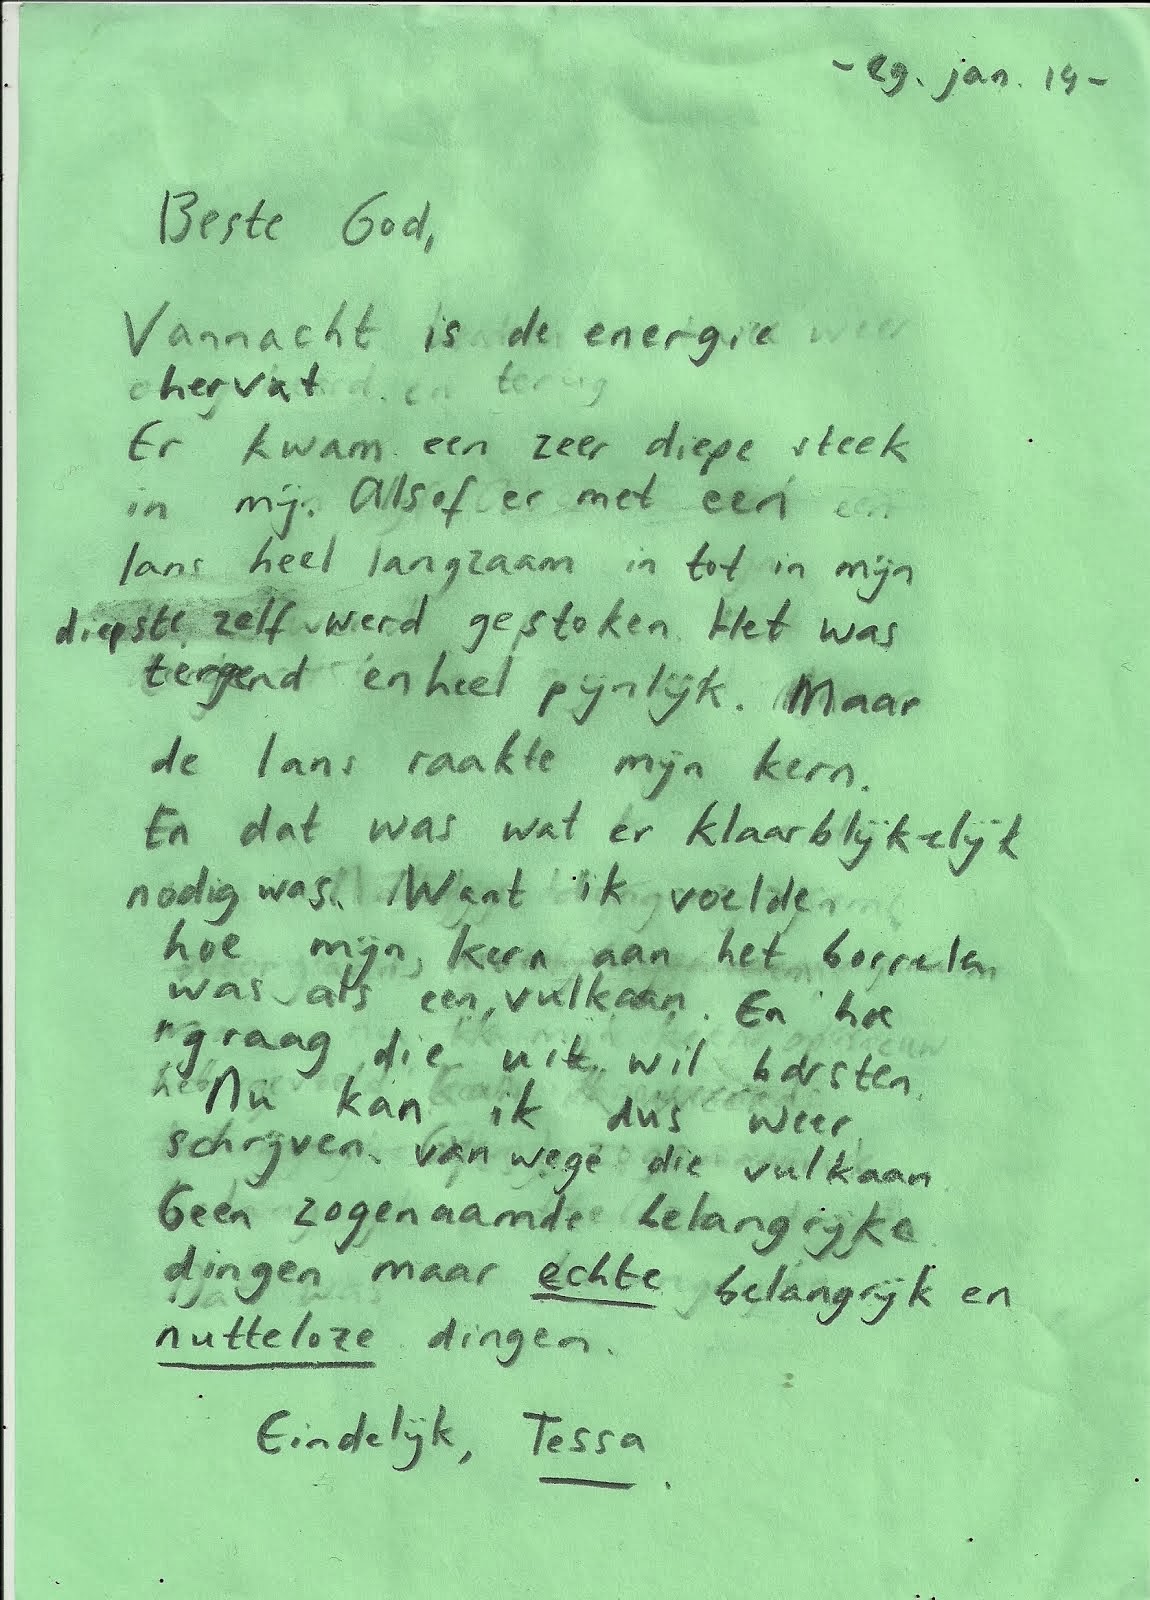 - 29. jan. 14 -
Beste God,
Vannacht is de energie weer
hervat en terug
Er kwam een zeer diepe steek
in mij. Alsof er met een een
lans heel langzaam in tot in mijn
diepste zelf werd gestoken. Het was
tergend en heel pijnlijk. Maar
de lans raakte mijn kern.
En dat was wat er klaarblijkelijk
nodig was. Want ik voelde
hoe mijn kern aan het borrelen
was als een vulkaan. En hoe
graag die uit wil barsten.
Nu kan ik dus weer
schrijven. van wege die vulkaan
Geen zogenaamde belangrijke
dingen maar echte belangrijk en
nutteloze dingen.
Eindelijk, Tessa.